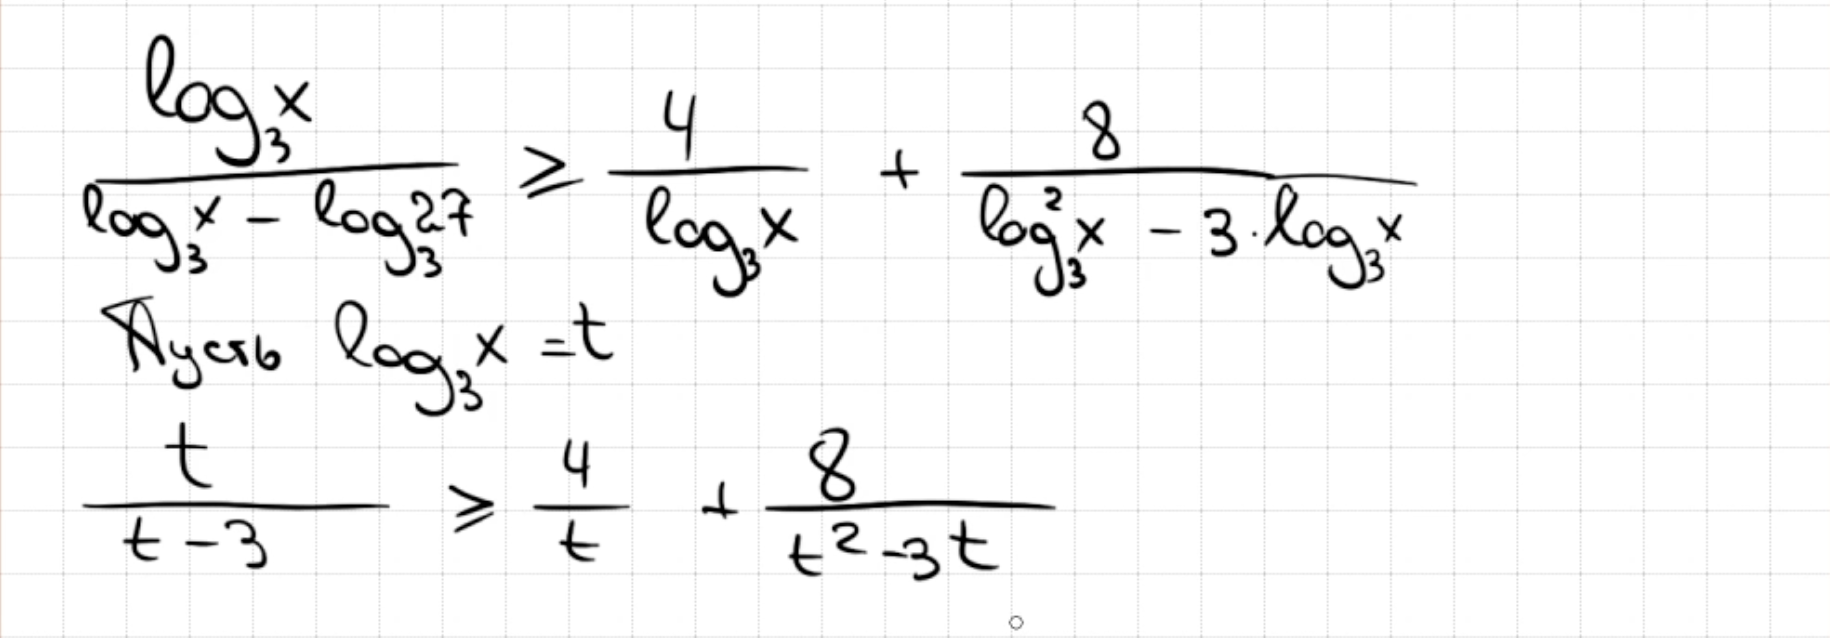 log₃x / (log₃x − log₃27) ≥ 4 / log₃x + 8 / (log₃²x − 3·log₃x)
Пусть log₃x = t
t / (t − 3) ≥ 4 / t + 8 / (t² − 3t)